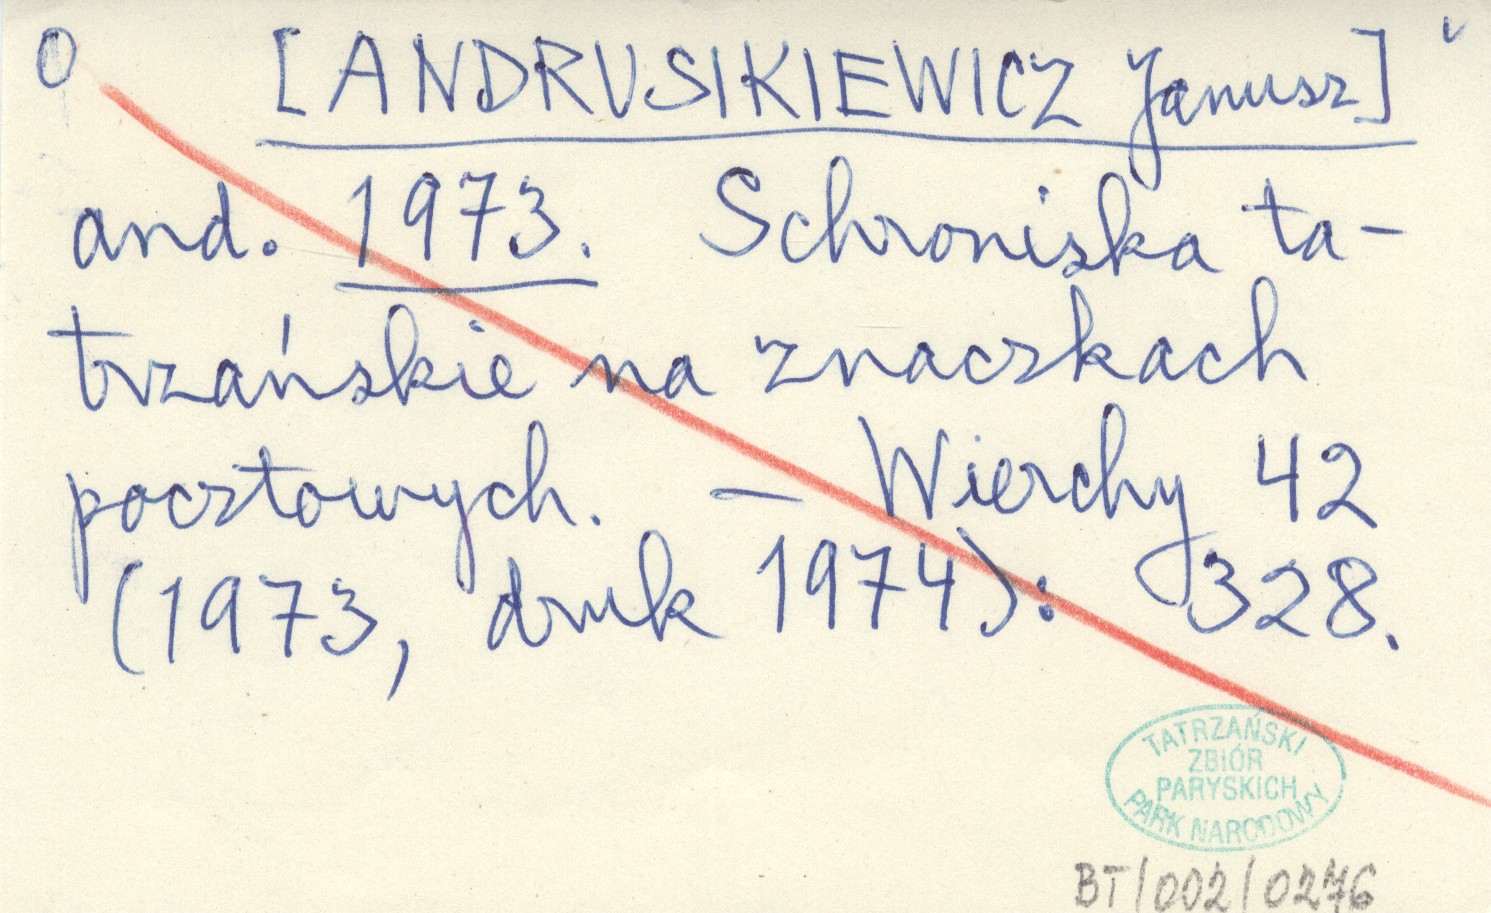 O [ANDRUSIKIEWICZ Janusz] v
and. 1973. Schroniska ta-
trzańskie na znaczkach
pocztowych. — Wierchy 42
(1973, druk 1974): 328.
TATRZAŃSKI
ZBIÓR
PARYSKICH
PARK NARODOWY
BT/002/0276